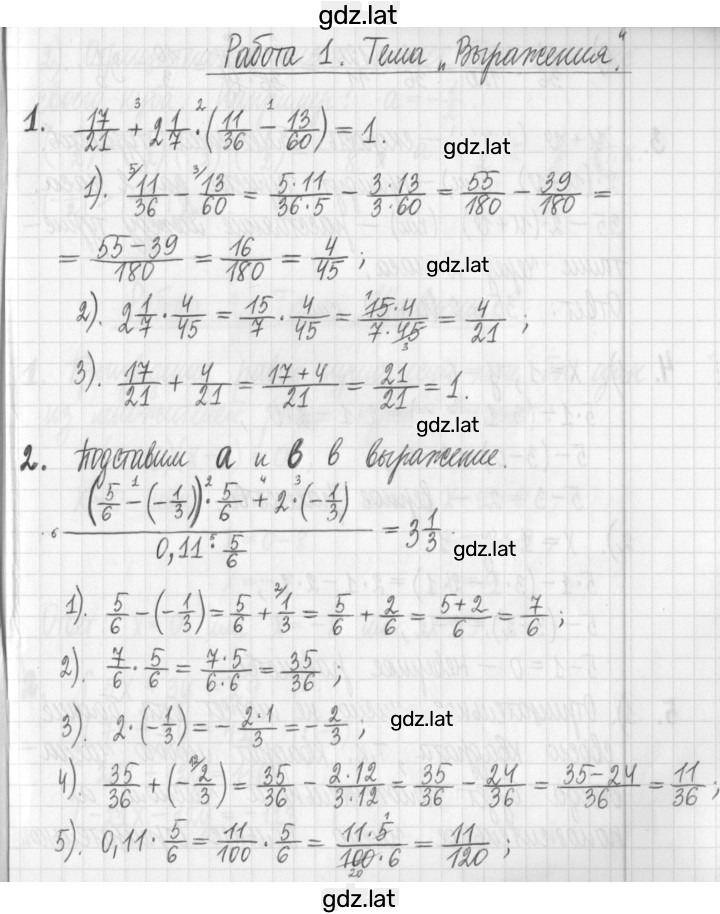 gdz.lat
Работа 1. Тема „Выражения".
1. 17/21 + 2 1/7 · (11/36 − 13/60) = 1.
3 2 1
gdz.lat
1). 11/36 − 13/60 = 5·11/36·5 − 3·13/3·60 = 55/180 − 39/180 =
5/ 3/
= 55−39/180 = 16/180 = 4/45 ;
gdz.lat
2). 2 1/7 · 4/45 = 15/7 · 4/45 = 15·4/7·45 = 4/21 ;
1 3
3). 17/21 + 4/21 = 17+4/21 = 21/21 = 1.
gdz.lat
2. Подставим а и в в выражение.
(5/6 − (−1/3)) · 5/6 + 2 · (−1/3) / 0,11 · 5/6 = 3 1/3.
1 2 4 3 6 5
gdz.lat
1). 5/6 − (−1/3) = 5/6 + 1/3 = 5/6 + 2/6 = 5+2/6 = 7/6 ;
2/
2). 7/6 · 5/6 = 7·5/6·6 = 35/36 ;
3). 2·(−1/3) = − 2·1/3 = − 2/3 ;
gdz.lat
4). 35/36 + (−2/3) = 35/36 − 2·12/3·12 = 35/36 − 24/36 = 35−24/36 = 11/36 ;
12/
5). 0,11 · 5/6 = 11/100 · 5/6 = 11·5/100·6 = 11/120 ;
1 20
gdz.lat